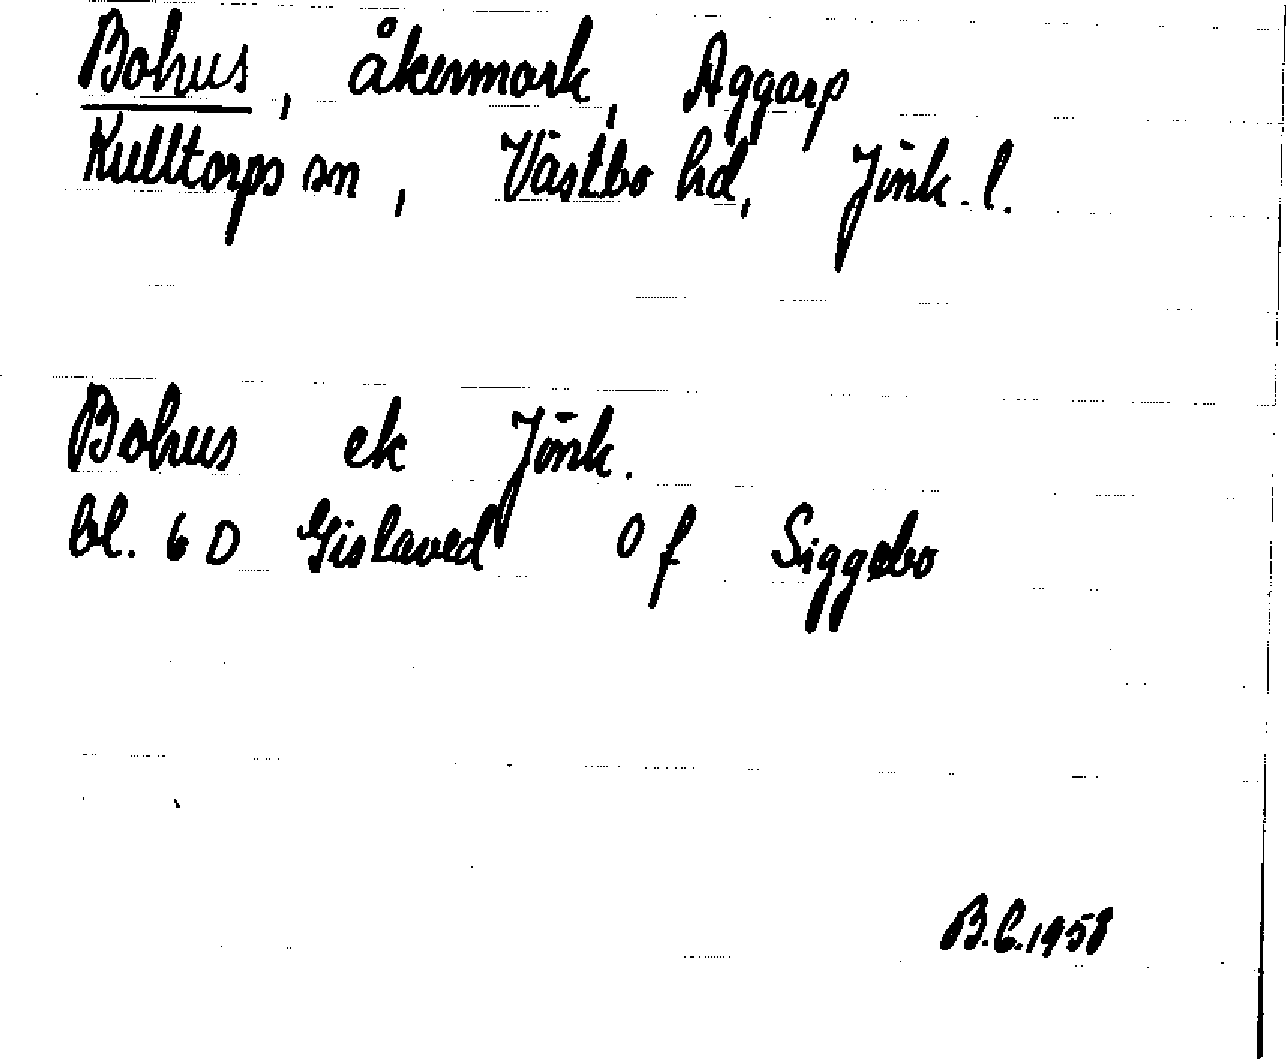 Bohus, åkermark, Aggarp
Kulltorps sn, Västbo hd, Jönk. l.
Bohus ek Jönk.
bl. 6 D Gislaved 0 f Siggebo
B.C.1958